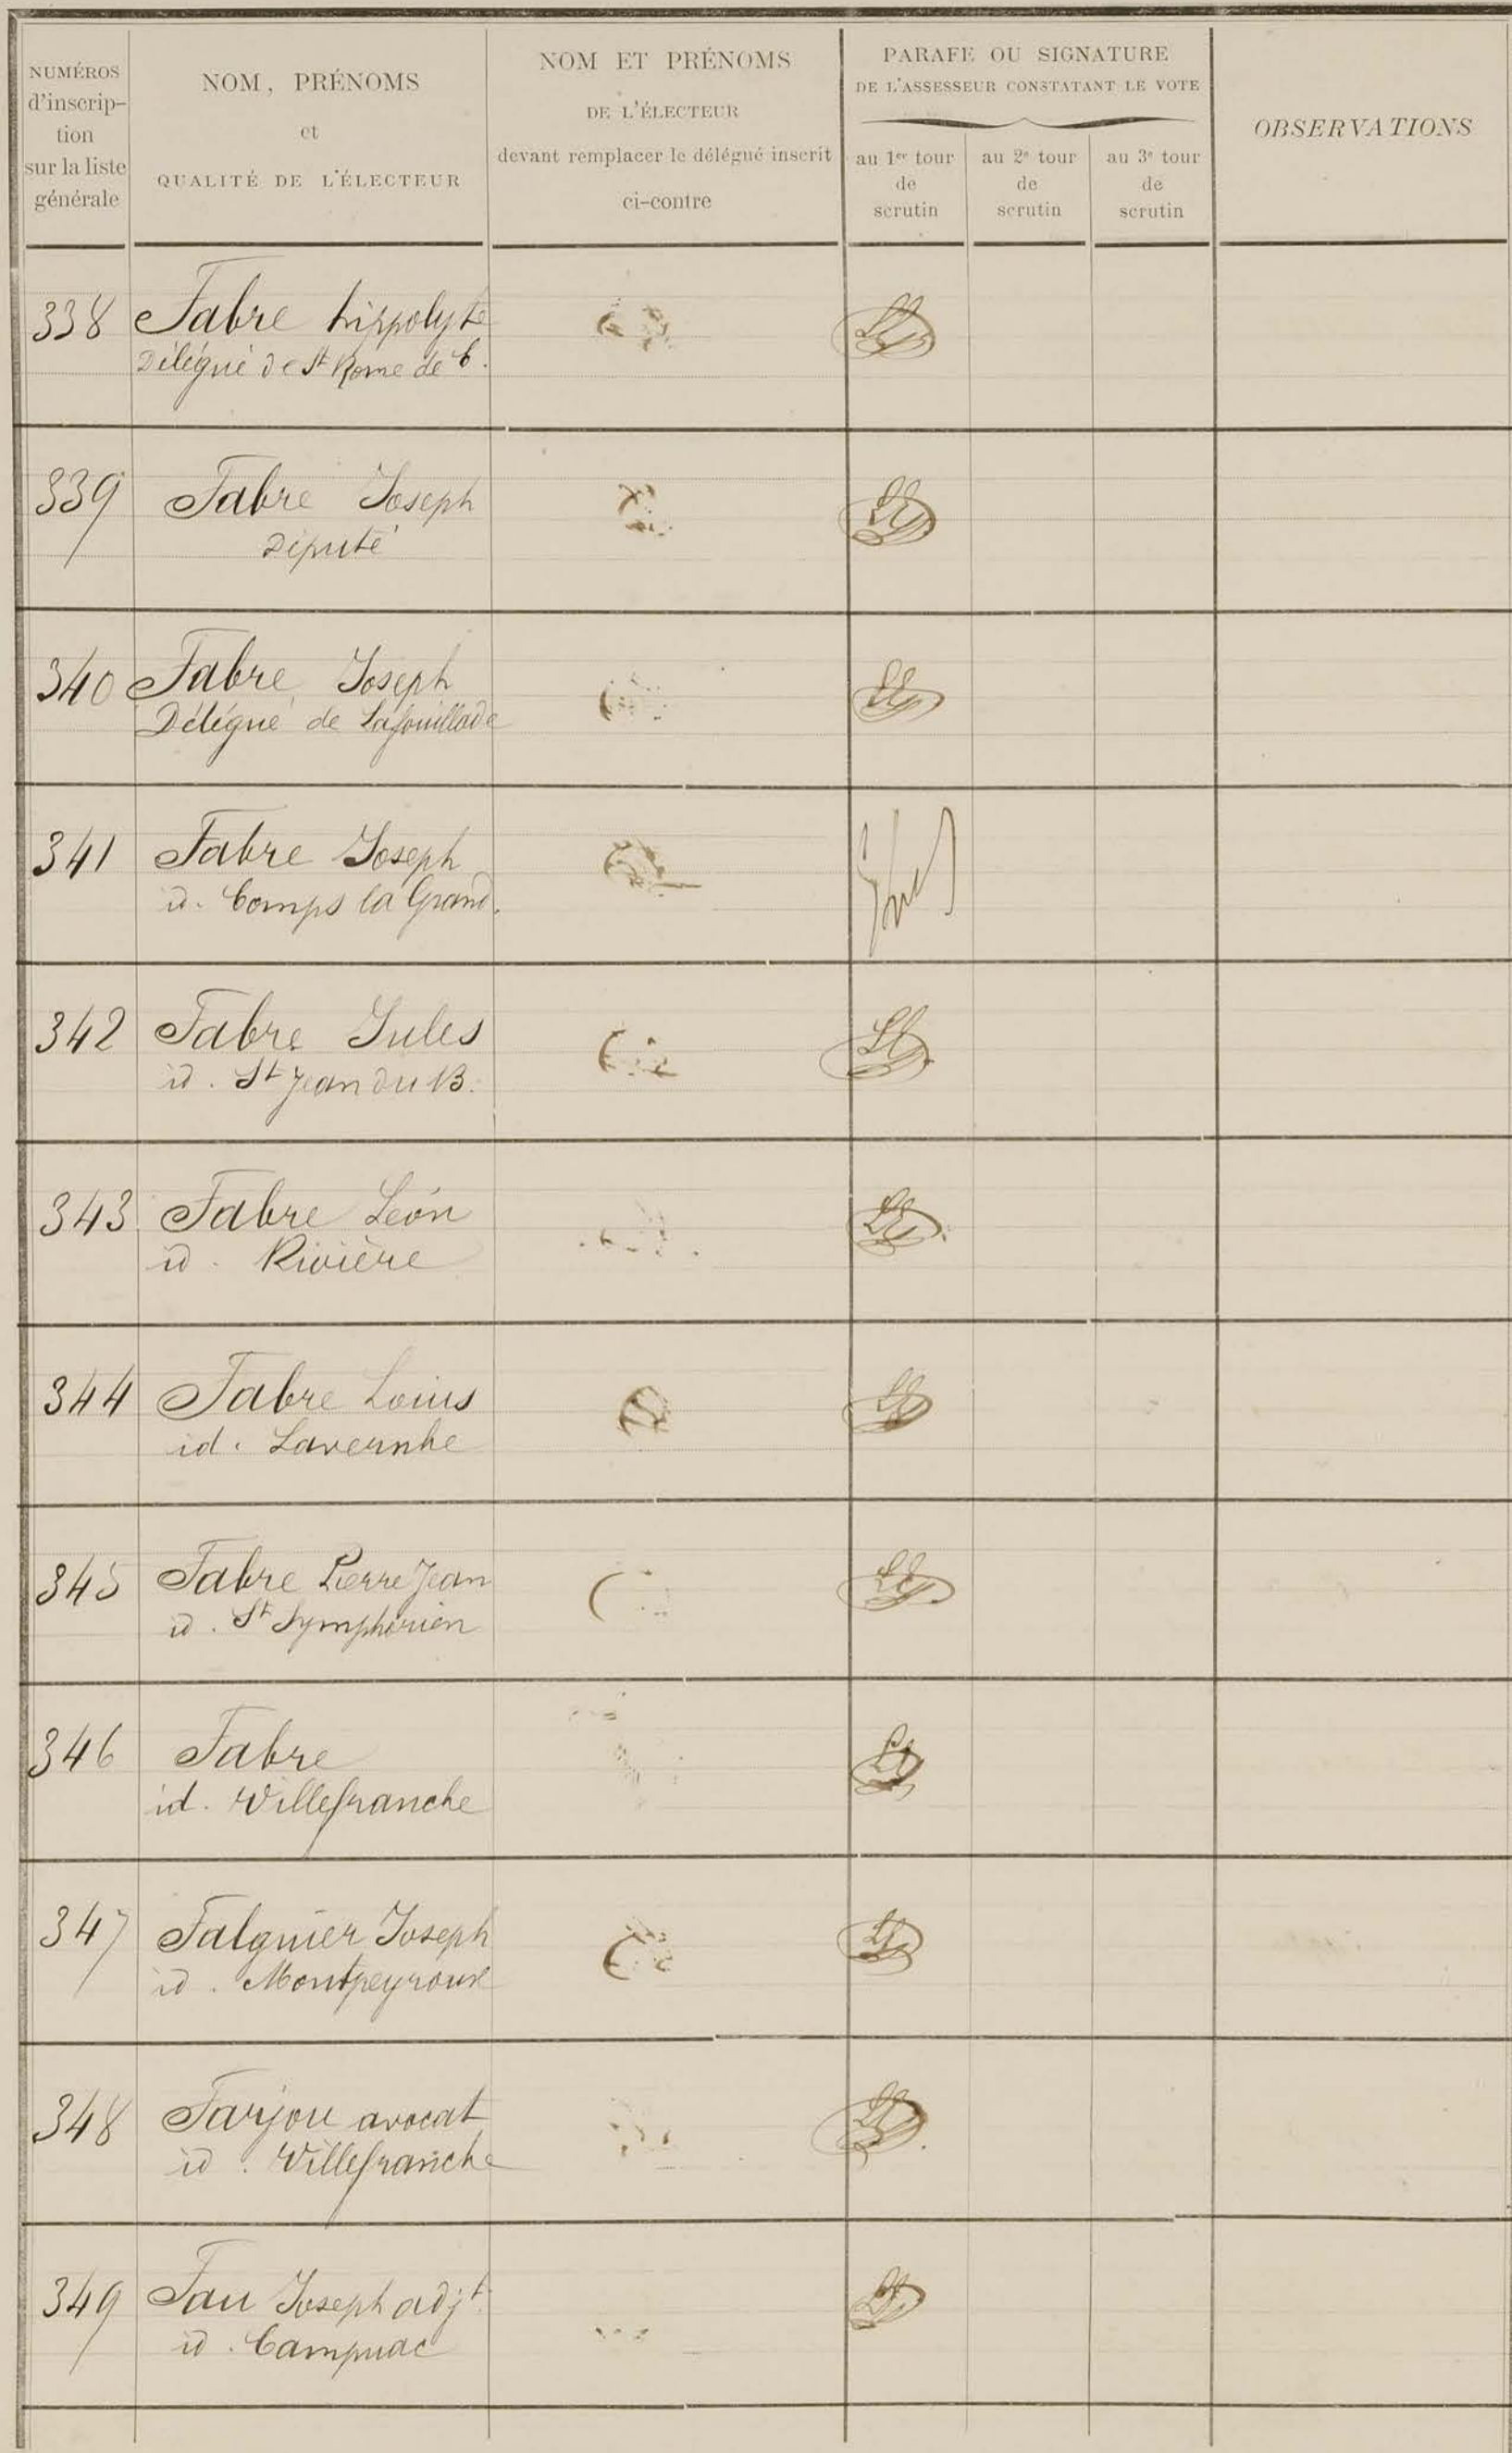 NUMÉROS
d'inscrip-
tion
sur la liste
générale
NOM, PRÉNOMS
et
QUALITÉ DE L'ÉLECTEUR
NOM ET PRÉNOMS
DE L'ÉLECTEUR
devant remplacer le délégué inscrit
ci-contre
PARAFE OU SIGNATURE
DE L'ASSESSEUR CONSTATANT LE VOTE
au 1er tour
de
scrutin
au 2e tour
de
scrutin
au 3e tour
de
scrutin
OBSERVATIONS
338 Fabre hippolyte
Délégué de St Rome de C.
339 Fabre Joseph
Député
340 Fabre Joseph
Délégué de Lafouillade
341 Fabre Joseph
id. Comps la Grand.
342 Fabre Jules
id. St Jean du B.
343 Fabre Léon
id. Rivière
344 Fabre Louis
id. Lavernhe
345 Fabre Pierre Jean
id. St Symphorien
346 Fabre
id. Villefranche
347 Falguier Joseph
id. Montpeyroux
348 Farjou avocat
id. Villefranche
349 Fau Joseph adjt.
id. Campuac